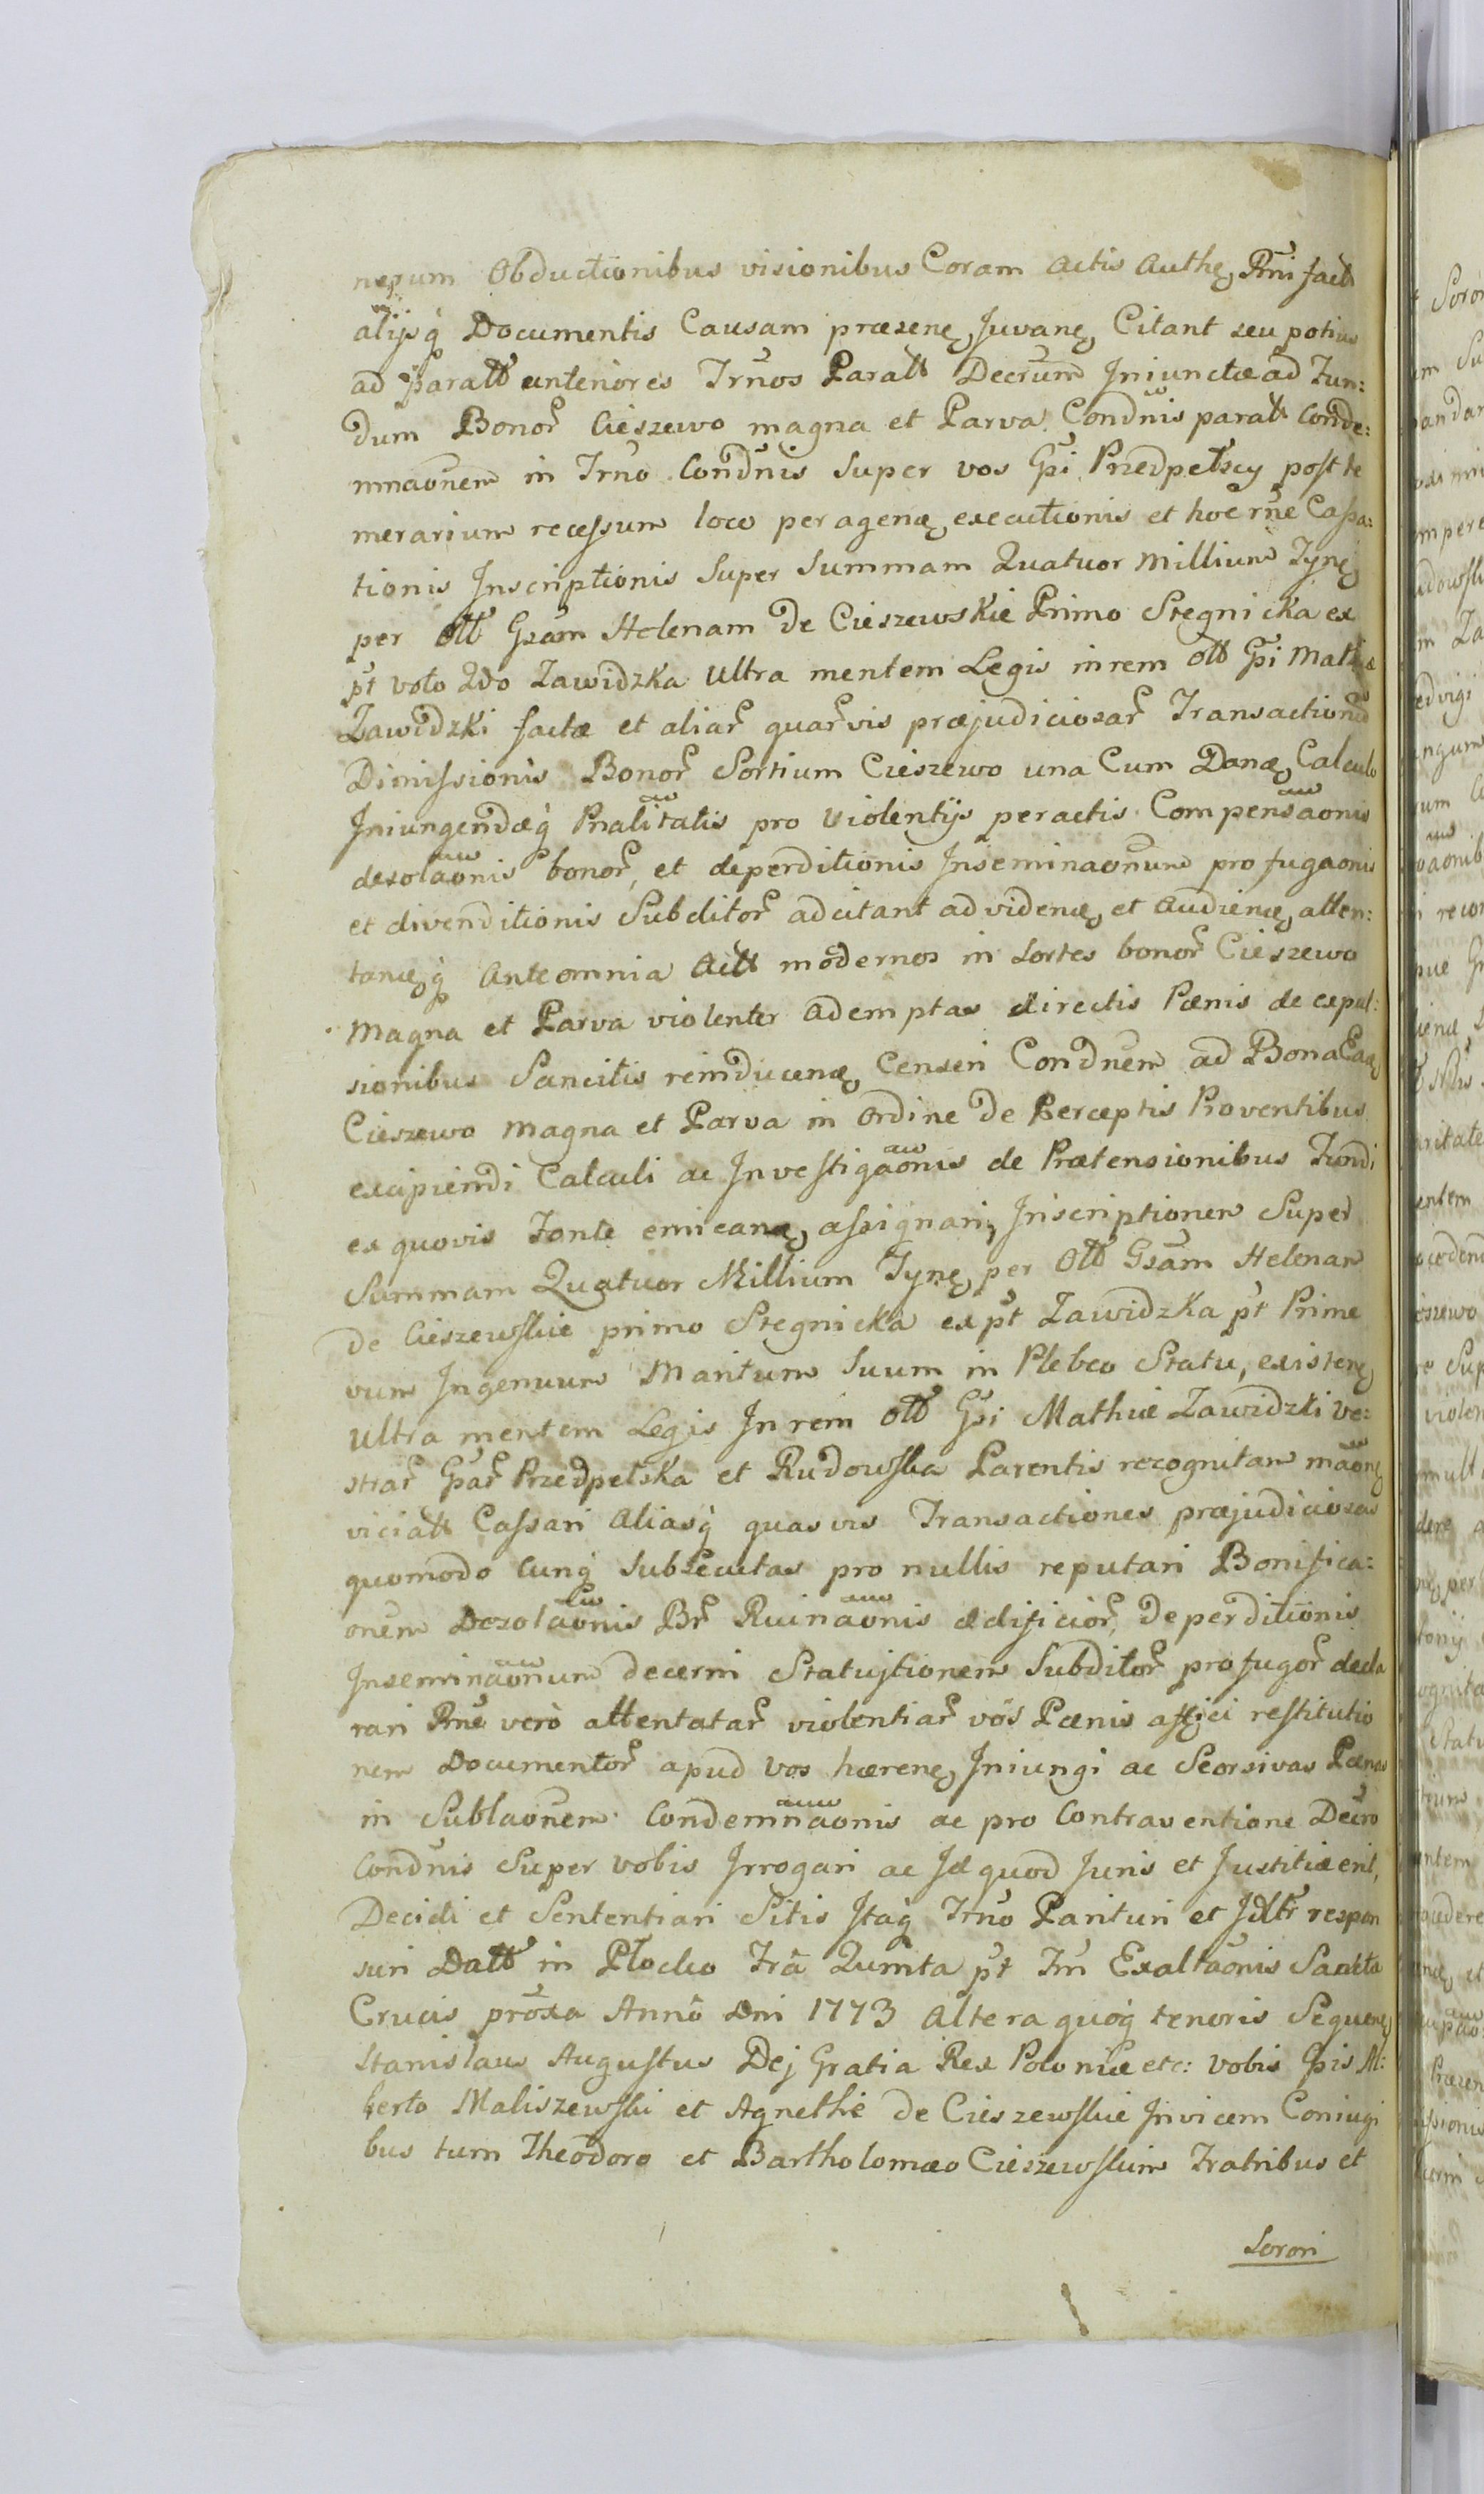 nerum Obductionibus visionibus Coram Actis Authę Rñi fact
alijsq̀ Documentis Causam præsenę Juvanę Citant seu potius
ad paratt anteriores Trños Paratt Decrum Jniunctæ ad Fun:
dum Bonor Cieszewo magna et Parva Condñis paratt Conde:
mnaonem in Trño Condñis super vos Gsi Przedpełscy post te
merarium recessum loco peragenæ executionis et hoc rñe Cassa:
tionis Jnscriptionis super summam Quatuor Millium Tynę
per Ott Gsam Helenam de Cieszewskie Primo Stegnicka ex
pt voto 2do Zawidzka Ultra mentem Legis in rem Ott Gsi Mathiæ
Zawidzki factæ et aliar quarvis præjudiciosar Transactionũ
Dimissionis Bonor Sortium Cieszewo una Cum Danæ Calculo
Jniungendæq̀ Pnalitatis pro Violentijs peractis Compensaonis
desolaonis bonor, et deperditionis Jnseminaonum profugaonis
et divenditionis Subditor adcitant ad videnę et Audienę atten:
tanæq̀ Ante omnia Actt modernos in Sortes bonor Cieszewo
Magna et Parva violenter Ademptas directis Pænis de expul:
sionibus Sancitis reinducenæ Censeri Condnem ad Bona Eaę
Cieszewo Magna et Parva in Ordine de Perceptis Proventibus
excipiendi Calculi ac Jnvestigaonis de Prætensionibus Fundi
ex quovis Fonte emicanę, assignari, Jnscriptionem Super
Summam Quatuor Millium Tynę per Ott Gsam Helenam
de Cieszewskie primo Stegnicka ex pt Zawidzka pt Prime
vum Jngenuum Maritum Suum in Plebeo Statu, existenę
Ultra mentem Legis Jn rem Ott Gsi Mathiæ Zawidzki ve:
strar Gsar Przedpelska et Rudowska Parentis recognitam maonę
viciatt Cassari Aliasq̀ quasvis Transactiones præjudiciosas
quomodo Cunq̀ Subsecutas pro nullis reputari Bonifica:
onem Dezolaonis Br Ruinaonis ædificior, Deperditionis
Jnseminaonum decerni Statujtionem Subditor profugor decla
rari Rñe verò attentatar violentiar vos Pænis affici restitutio
nem Documentor apud Vos hærenę Jniungi ac Seorsivas Pænas
in Sublaonem Condemnaonis ac pro Contraventione Decro
Condñis Super vobis Jrrogari ac Jd quod Juris et Justitiæ erit,
Decidi et Sententiari Sitis Jtaq̀ Trño Parituri et Jdltr respon
suri Datt in Płocko Fra Quinta pt Fm Exaltaonis Sanctæ
Crucis proxa Anno Dni 1773 Altera quoq̀ tenoris Sequenę
Stanislaus Augustus Dej Gratia Rex Poloniæ etc: Vobis Gsis Al:
berto Maliszewski et Agnethe de Cieszewskie Jnvicem Coniugi
bus tum Theodoro et Bartholomæo Cieszewskim Fratribus et
Sorori